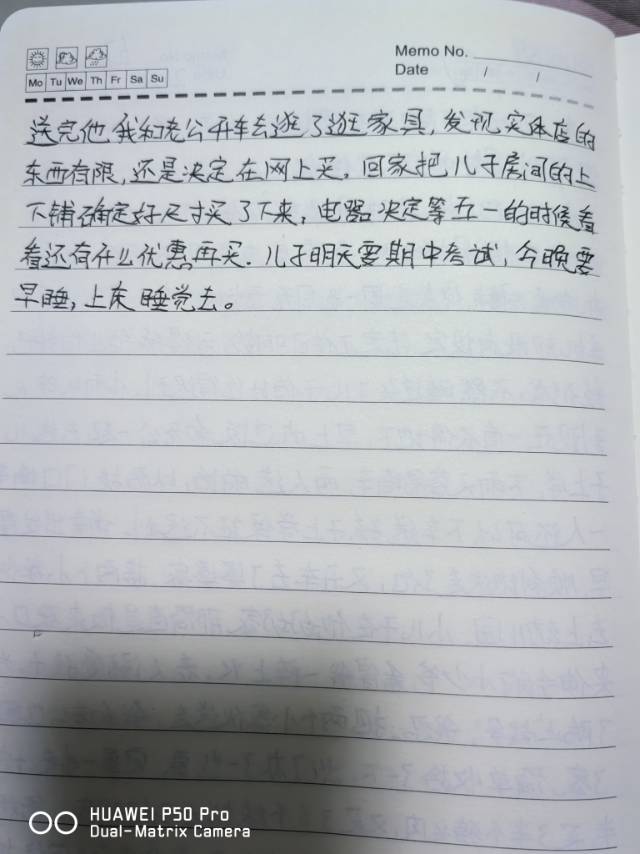 Memo No.
Mo Tu We Th Fr Sa Su
Date / /
送完他我和老公开车去逛了逛家具,发现实体店的
东西有限,还是决定在网上买,回家把儿子房间的上
下铺确定好尺寸买了下来,电器决定等五一的时候看
看还有什么优惠再买.儿子明天要期中考试,今晚要
早睡,上床睡觉去。
HUAWEI P50 Pro
Dual-Matrix Camera